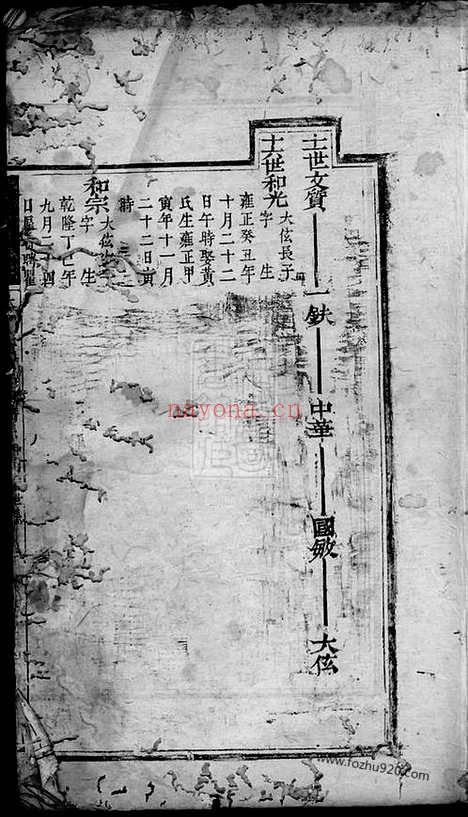 世文質 一鈇 中華 國敏 大伭
世和光
大伭長子
字 生
雍正癸丑年
十月二十二
日午時娶黃
氏生雍正甲
寅年十一月
二十二日寅
時
和宗
大伭
字 生
乾隆丁巳年
九月二十四
日
nayona.cn
www.fozhu920.com